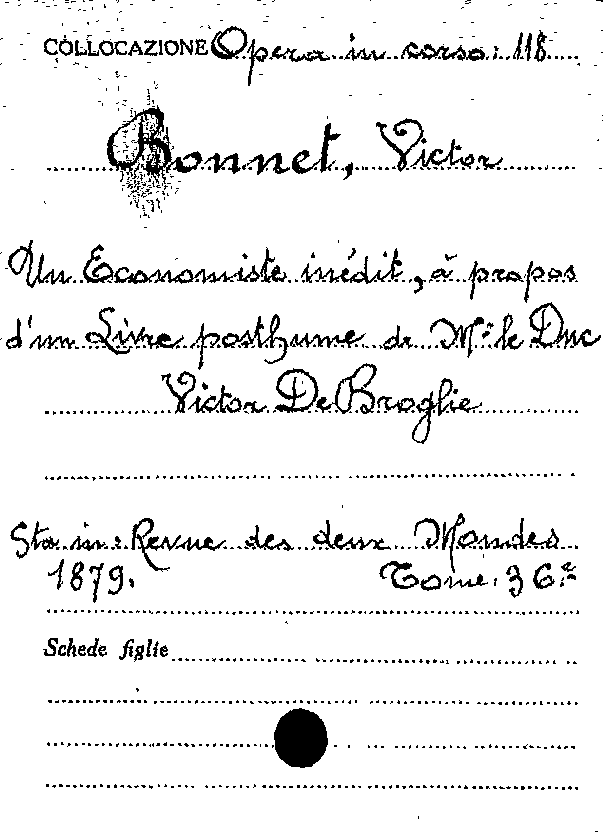 COLLOCAZIONE Opera in corso: 118
Bonnet, Victor
Un Economiste inédit, à propos
d'un Livre posthume de Mr. le Duc
Victor De Broglie
Sta in: Revue des deux Mondes
1879. Tome. 36.e
Schede figlie